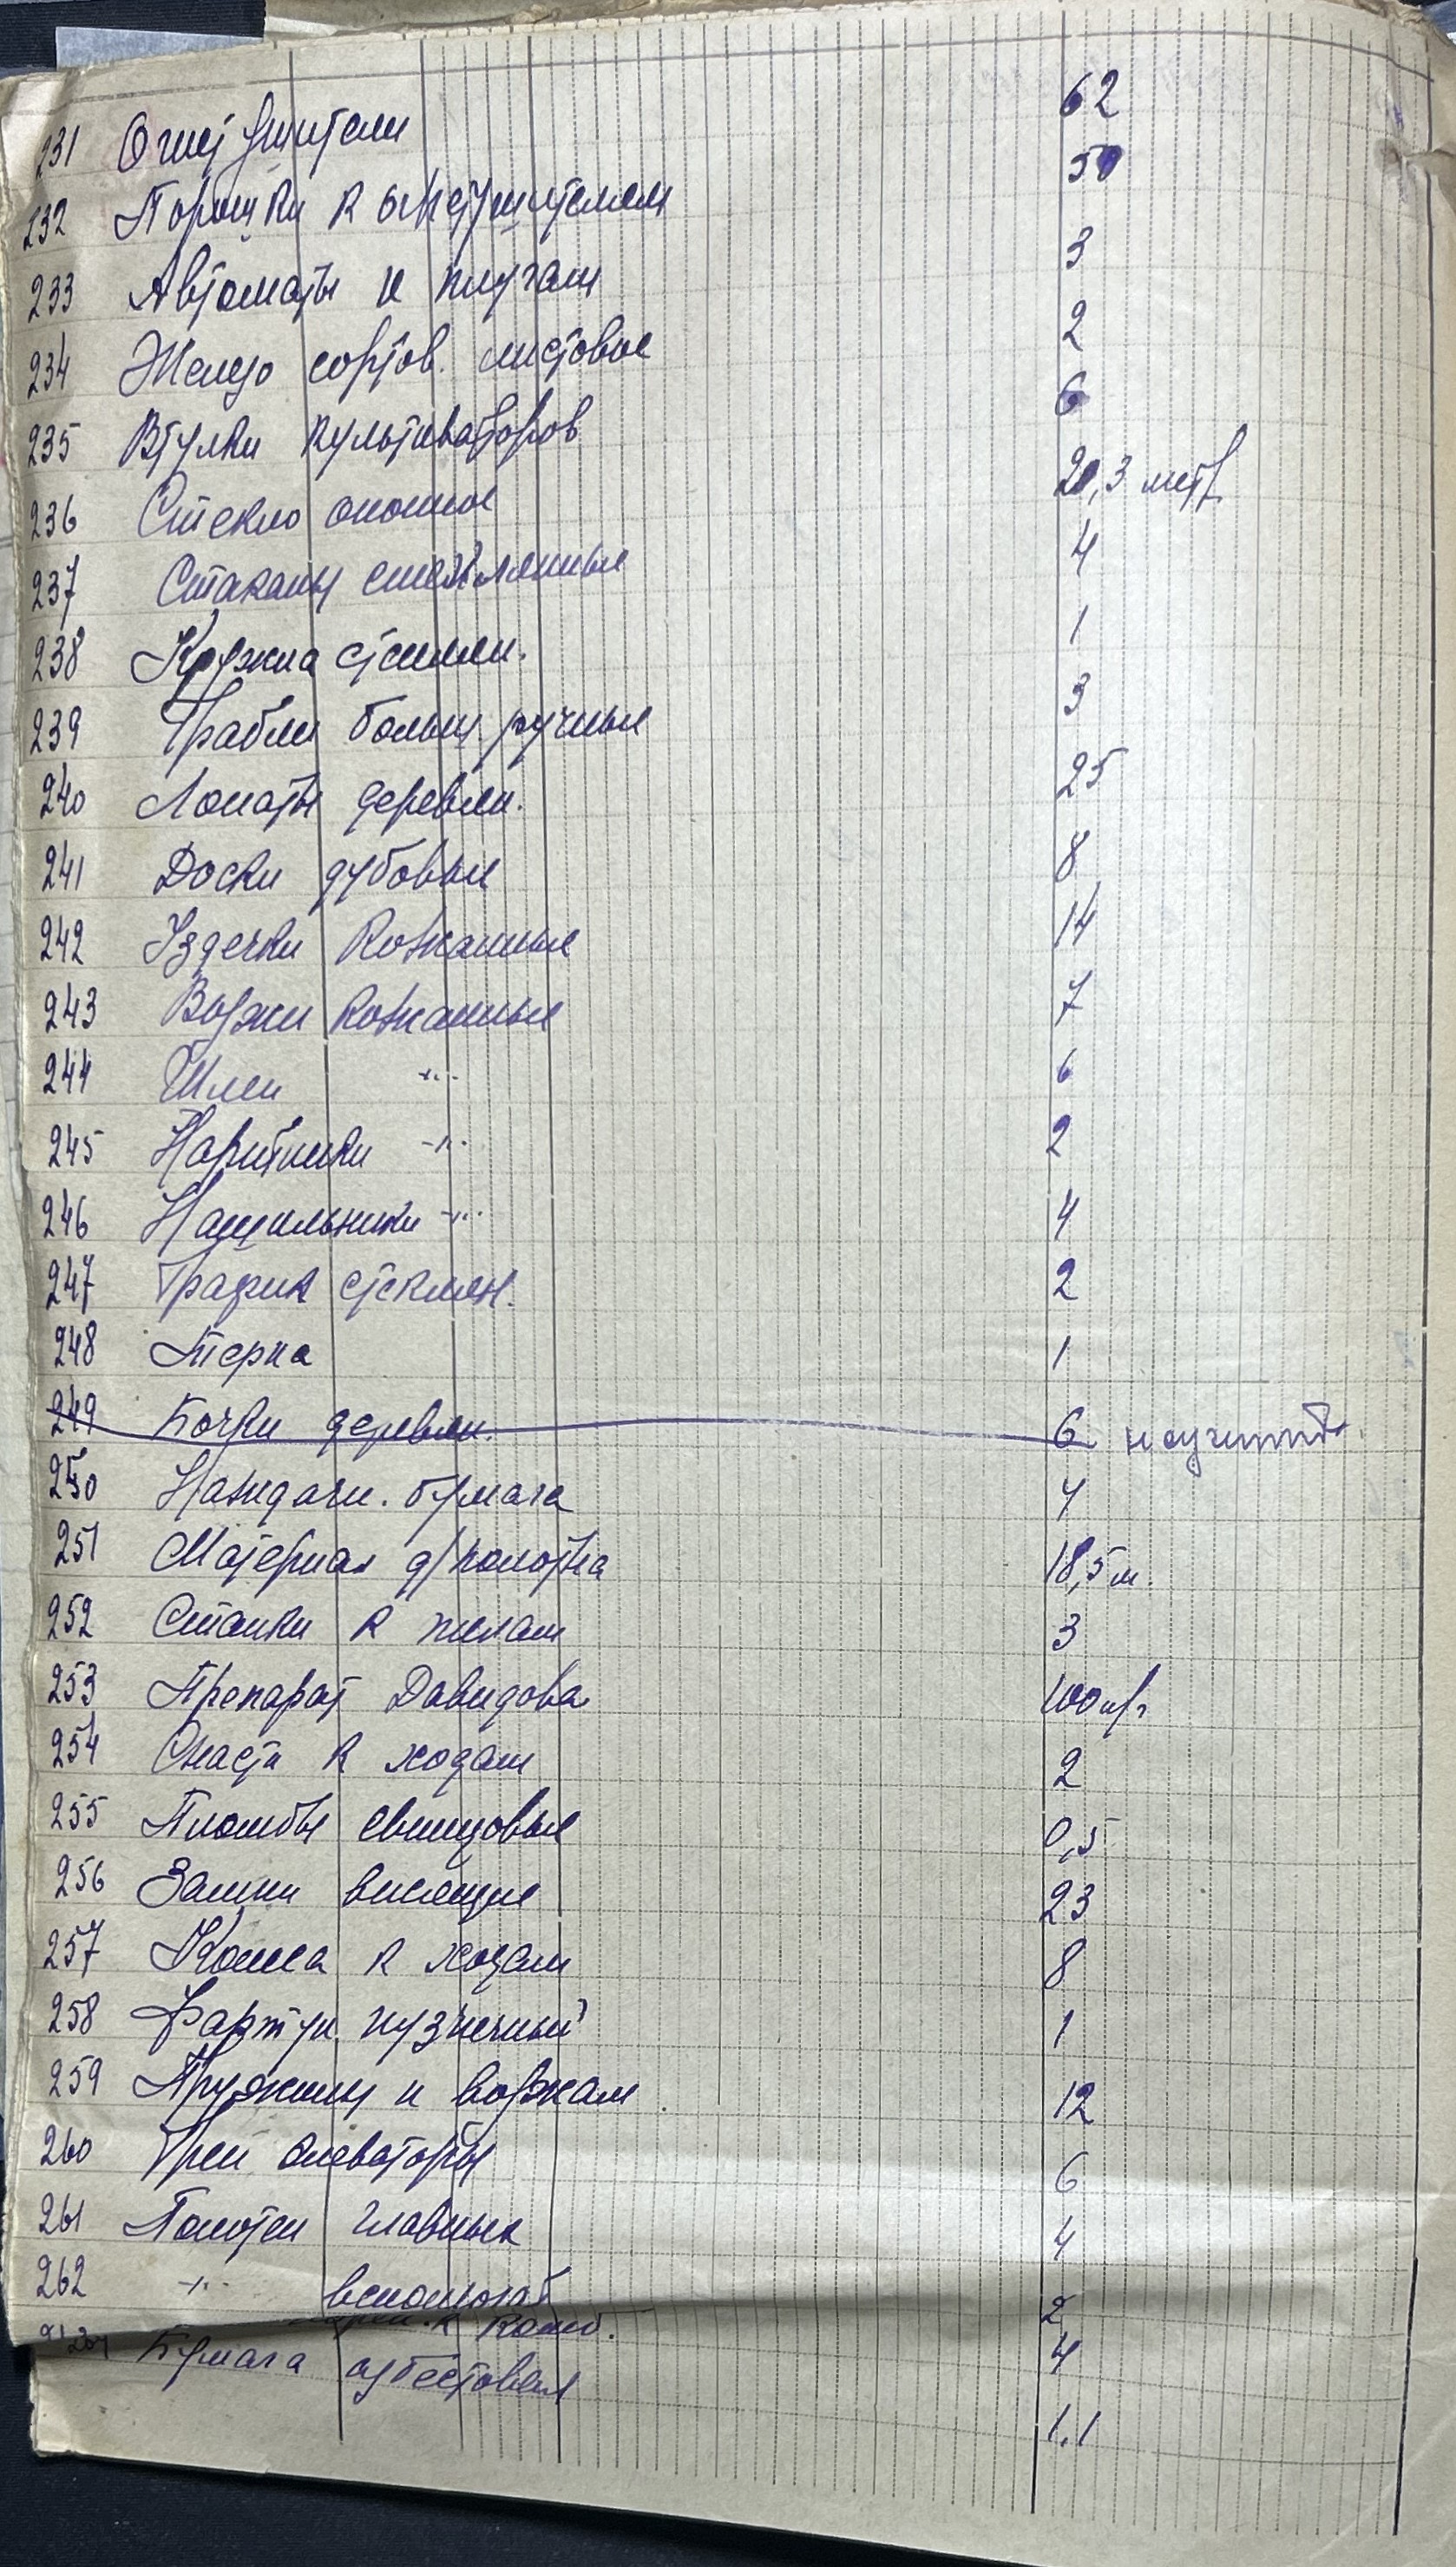 231 Огнетушители 62
232 Порошки к огнетушителям 50
233 Автоматы к плугам 3
234 Железо сортов. листовое 2
235 Втулки культиваторов 6
236 Стекло оконное 20,3 метр
237 Стаканы стеклянные 4
238 Кружка стеклян. 1
239 Грабли больш. ручные 3
240 Лопаты деревян. 25
241 Доски дубовые 8
242 Уздечки кожанные 14
243 Вожжи кожанные 7
244 Шлеи -"- 6
245 Наритники -"- 2
246 Нащильники -"- 4
247 Графин стеклян. 2
248 Терка 1
249 Бочки деревян. 6 не считать
250 Наждачн. бумага 4
251 Материал д/полотна 18,5 м.
252 Станки к пилам 3
253 Препарат Давидова 100 кг
254 Снасти к ходам 2
255 Пломбы свинцовые 0,5
256 Замки висящие 23
257 Колеса к ходам 8
258 Фартук кузнечный 1
259 Пружины к 12
260 элеваторы 6
261 Полотен главных 4
262 -"- вспомогат 2
к комб. 4
Бумага азбестовая 1.1